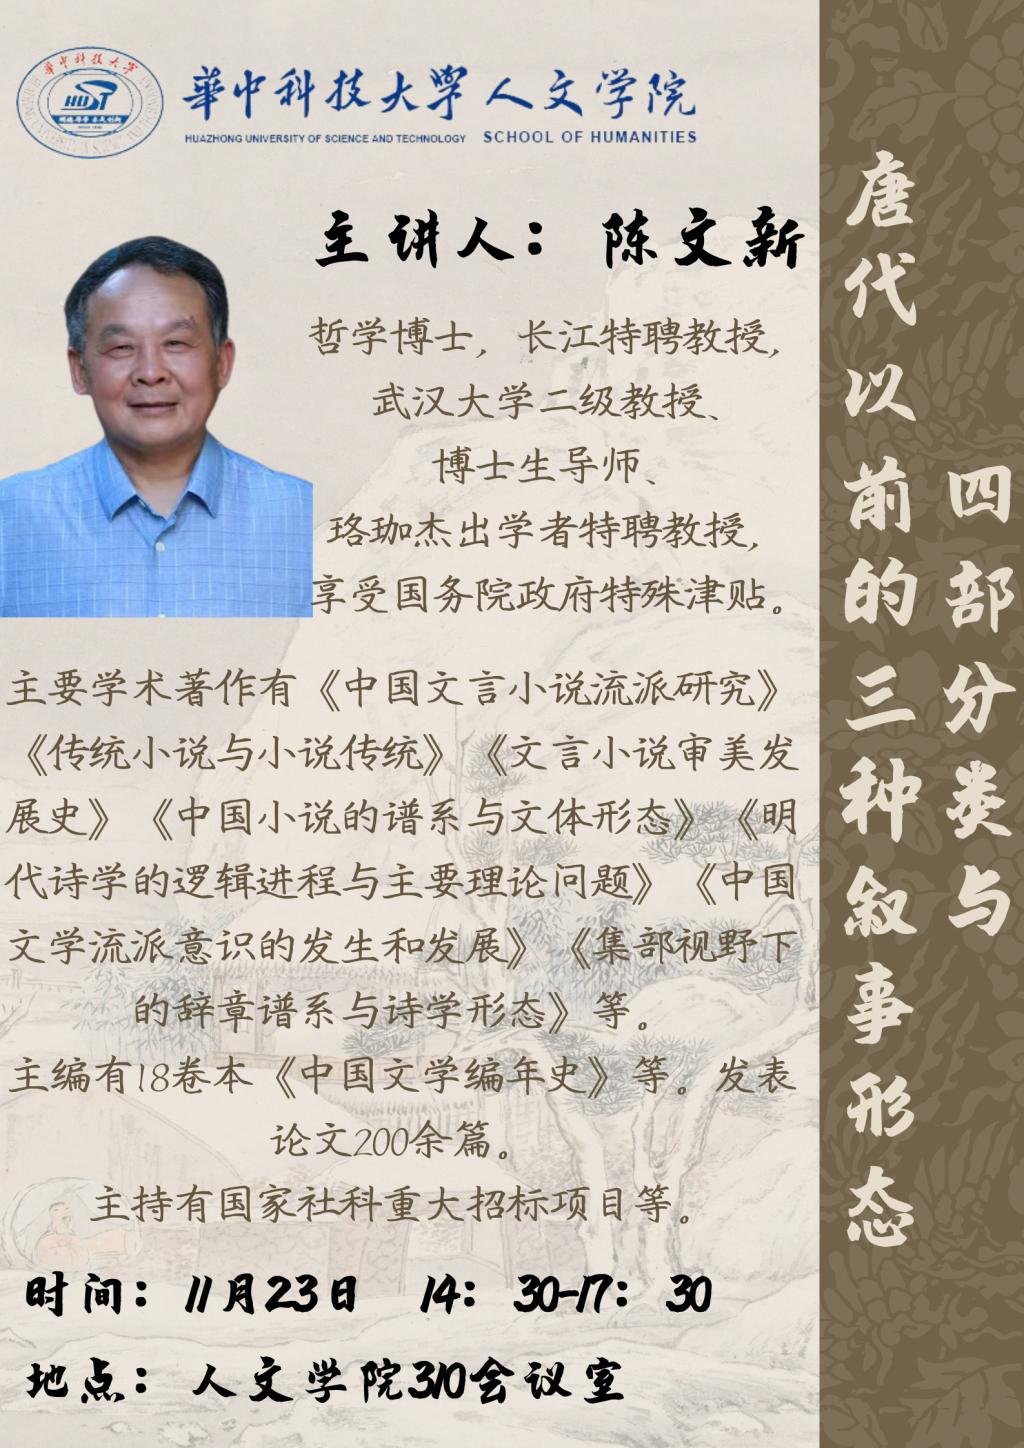 華中科技大學
HUST
華中科技大學 人文学院
HUAZHONG UNIVERSITY OF SCIENCE AND TECHNOLOGY SCHOOL OF HUMANITIES
四部分类与
唐代以前的三种叙事形态
主讲人：陈文新
哲学博士，长江特聘教授，
武汉大学二级教授、
博士生导师、
珞珈杰出学者特聘教授，
享受国务院政府特殊津贴。
主要学术著作有《中国文言小说流派研究》
《传统小说与小说传统》《文言小说审美发
展史》《中国小说的谱系与文体形态》《明
代诗学的逻辑进程与主要理论问题》《中国
文学流派意识的发生和发展》《集部视野下
的辞章谱系与诗学形态》等。
主编有18卷本《中国文学编年史》等。发表
论文200余篇。
主持有国家社科重大招标项目等。
时间：11月23日 14：30-17：30
地点：人文学院310会议室